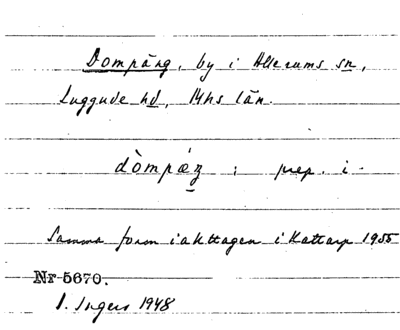 Dompäng, by i Allerums sn,
Luggude hd, Mhs län.
dòmpæ̀ŋ ; prep. i -
Samma form iakttagen i Kattarp 1955
Nr 5670.
I. Ingers 1948